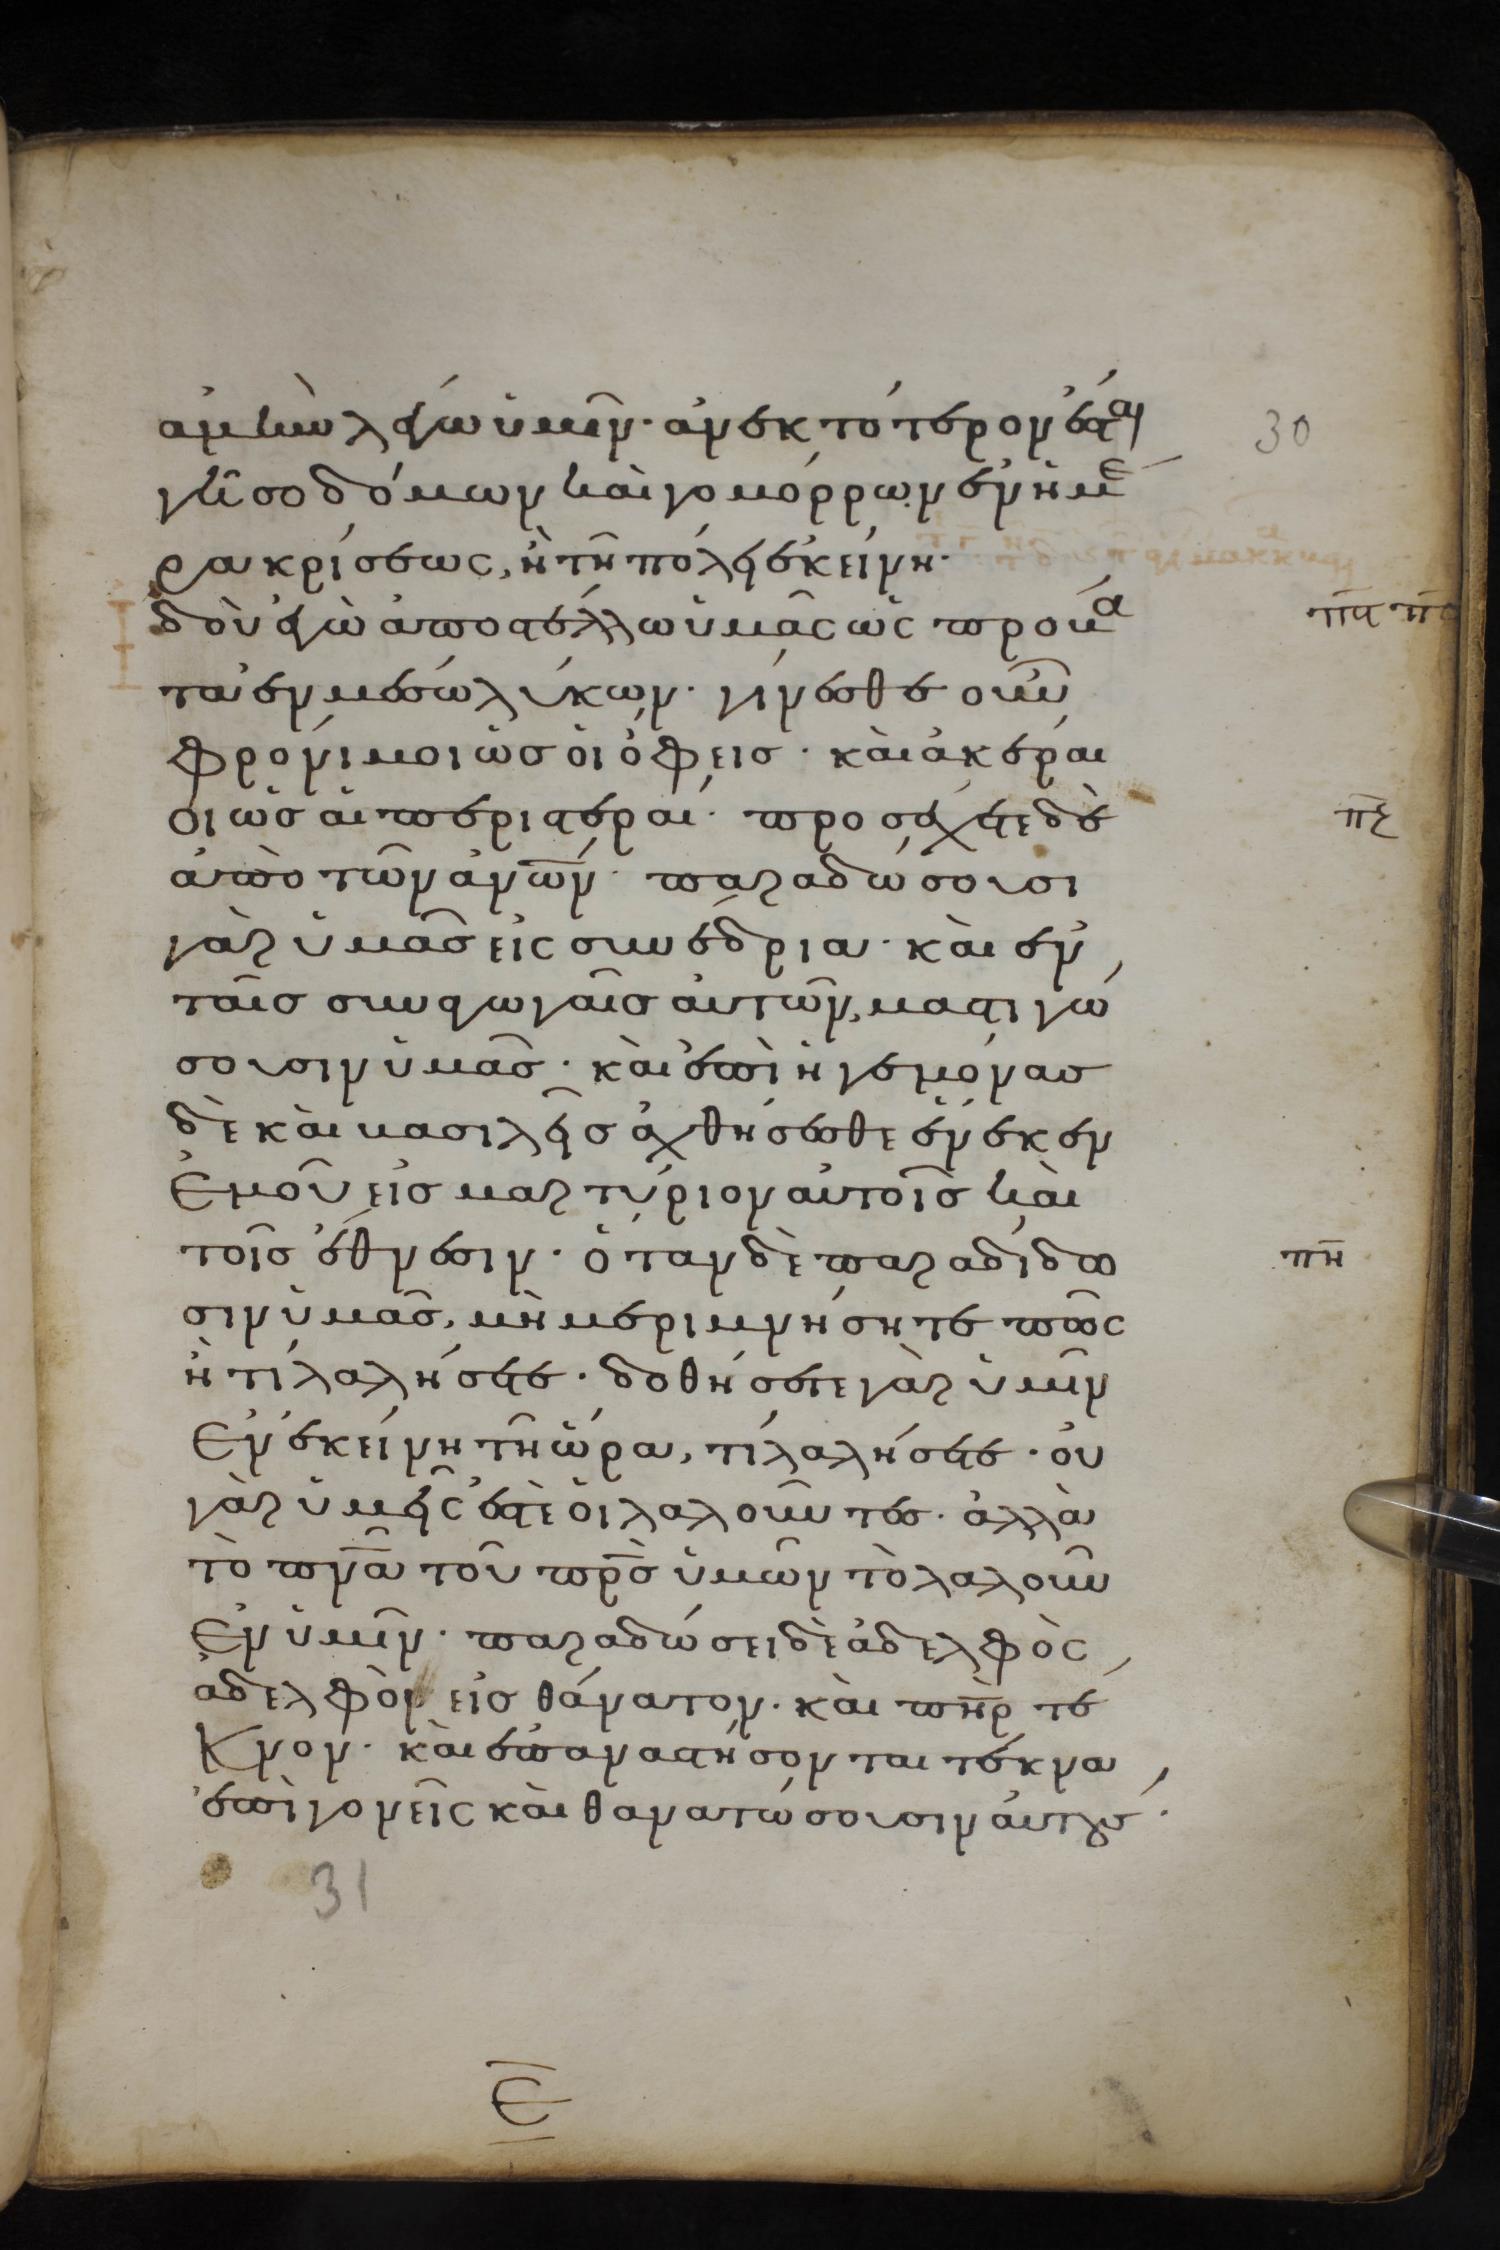 ἀμὴν λέγω ὑμῖν· ἀνεκτότερον ἔσται
γῆ σοδόμων καὶ γομόρρων ἐν ἡμέ
ρα κρίσεως, ἢ τῆ πόλει ἐκείνη·
δοὺ ἐγὼ ἀποστέλλω ὑμᾶς ὡς πρόβα
τα ἐν μέσω λύκων· γίνεσθε οὖν
φρόνιμοι ὡσ οἱ ὄφεισ· καὶ ἀκέραι
οι ὡσ αἱ περιστεραί· προσέχετε δὲ
ἀπὸ τῶν ἀνων· παραδώσουσι
γὰρ ὑμᾶσ εἰς συνέδρια· καὶ ἐν
ταῖσ συναγωγαῖσ αὐτῶν, μαστιγώ
σουσιν ὑμᾶσ· καὶ ἐπὶ ἡγεμόνασ
δὲ καὶ βασιλεῖσ ἀχθήσεσθε ἕνεκεν
ἐμοῦ εἰσ μαρτύριον αὐτοῖσ καὶ
τοῖσ ἔθνεσιν· ὅταν δὲ παραδιδῶ
σιν ὑμᾶσ, μὴ μεριμνήσητε πῶς
ἢ τί λαλήσετε· δοθήσεται γὰρ ὑμῖν
ἐν ἐκείνη τῆ ὥρα, τί λαλήσετε· οὐ
γὰρ ὑμεῖς ἐστὲ οἱ λαλοῦντεσ· ἀλλὰ
τὸ πνα τοῦ πρσ ὑμῶν τὸ λαλοῦν
ἐν ὑμῖν· παραδώσει δὲ ἀδελφὸς
ἀδελφὸν εἰσ θάνατον· καὶ πηρ τέ
κνον· καὶ ἐπαναστήσονται τέκνα
ἐπὶ γονεῖς καὶ θανατώσουσιν αὐτούσ·
30
πε
πη
31
Ε